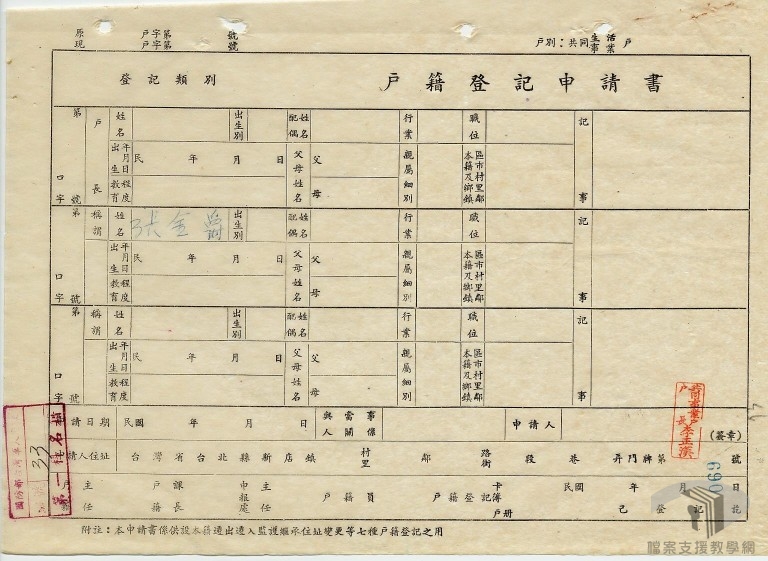 原 戶字第 號
現 戶字第 號
戶別：共同生活事業戶
登記類別 戶籍登記申請書
第 口字 號 戶長 姓名 出生別 配偶姓名 行業 職位 記事
出生年月日 民 年 月 日 父母姓名 父 母 親屬細別 本籍及鄉鎮區市村里鄰
教育程度
第 口字 號 稱謂 姓名 張金爵 出生別 配偶姓名 行業 職位 記事
出生年月日 民 年 月 日 父母姓名 父 母 親屬細別 本籍及鄉鎮區市村里鄰
教育程度
第 口字 號 稱謂 姓名 出生別 配偶姓名 行業 職位 記事
出生年月日 民 年 月 日 父母姓名 父 母 親屬細別 本籍及鄉鎮區市村里鄰
教育程度
請日期 民國 年 月 日 與當事人關係 申請人 (簽章)
戶長李玉溪
請人住址 台灣省台北縣新店鎮 村里 鄰 路街 段 巷 弄門牌第 號
戶 主任 戶籍課長 申報處主任 戶籍員 戶籍登記卡簿戶冊 民國 年 月 日 已登記訖
069
33
第 件名
附註：本申請書係供設本籍遷出遷入監護繼承住址變更等七種戶籍登記之用
檔案支援教學網